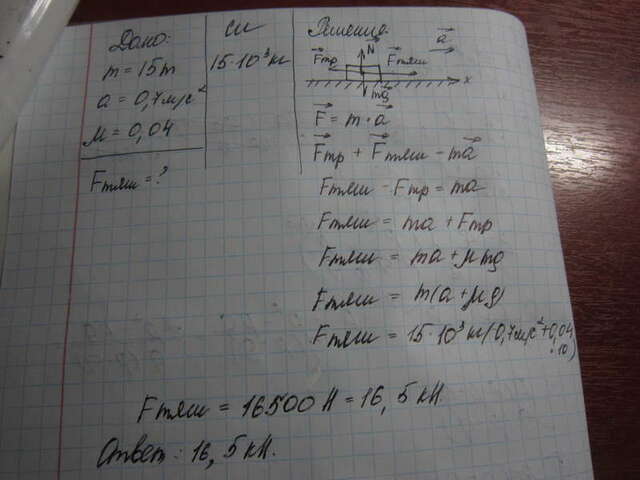 Дано:
m = 15т
a = 0,7м/с²
μ = 0,04
Fтяги = ?
СИ
15·10³кг
Решение:
N a
Fтр Fтяги
mg x
F = m·a
Fтр + Fтяги = ma
Fтяги - Fтр = ma
Fтяги = ma + Fтр
Fтяги = ma + μmg
Fтяги = m(a + μg)
Fтяги = 15·10³кг(0,7м/с²+0,04
·10)
Fтяги = 16500 Н = 16,5 кН.
Ответ: 16,5 кН.